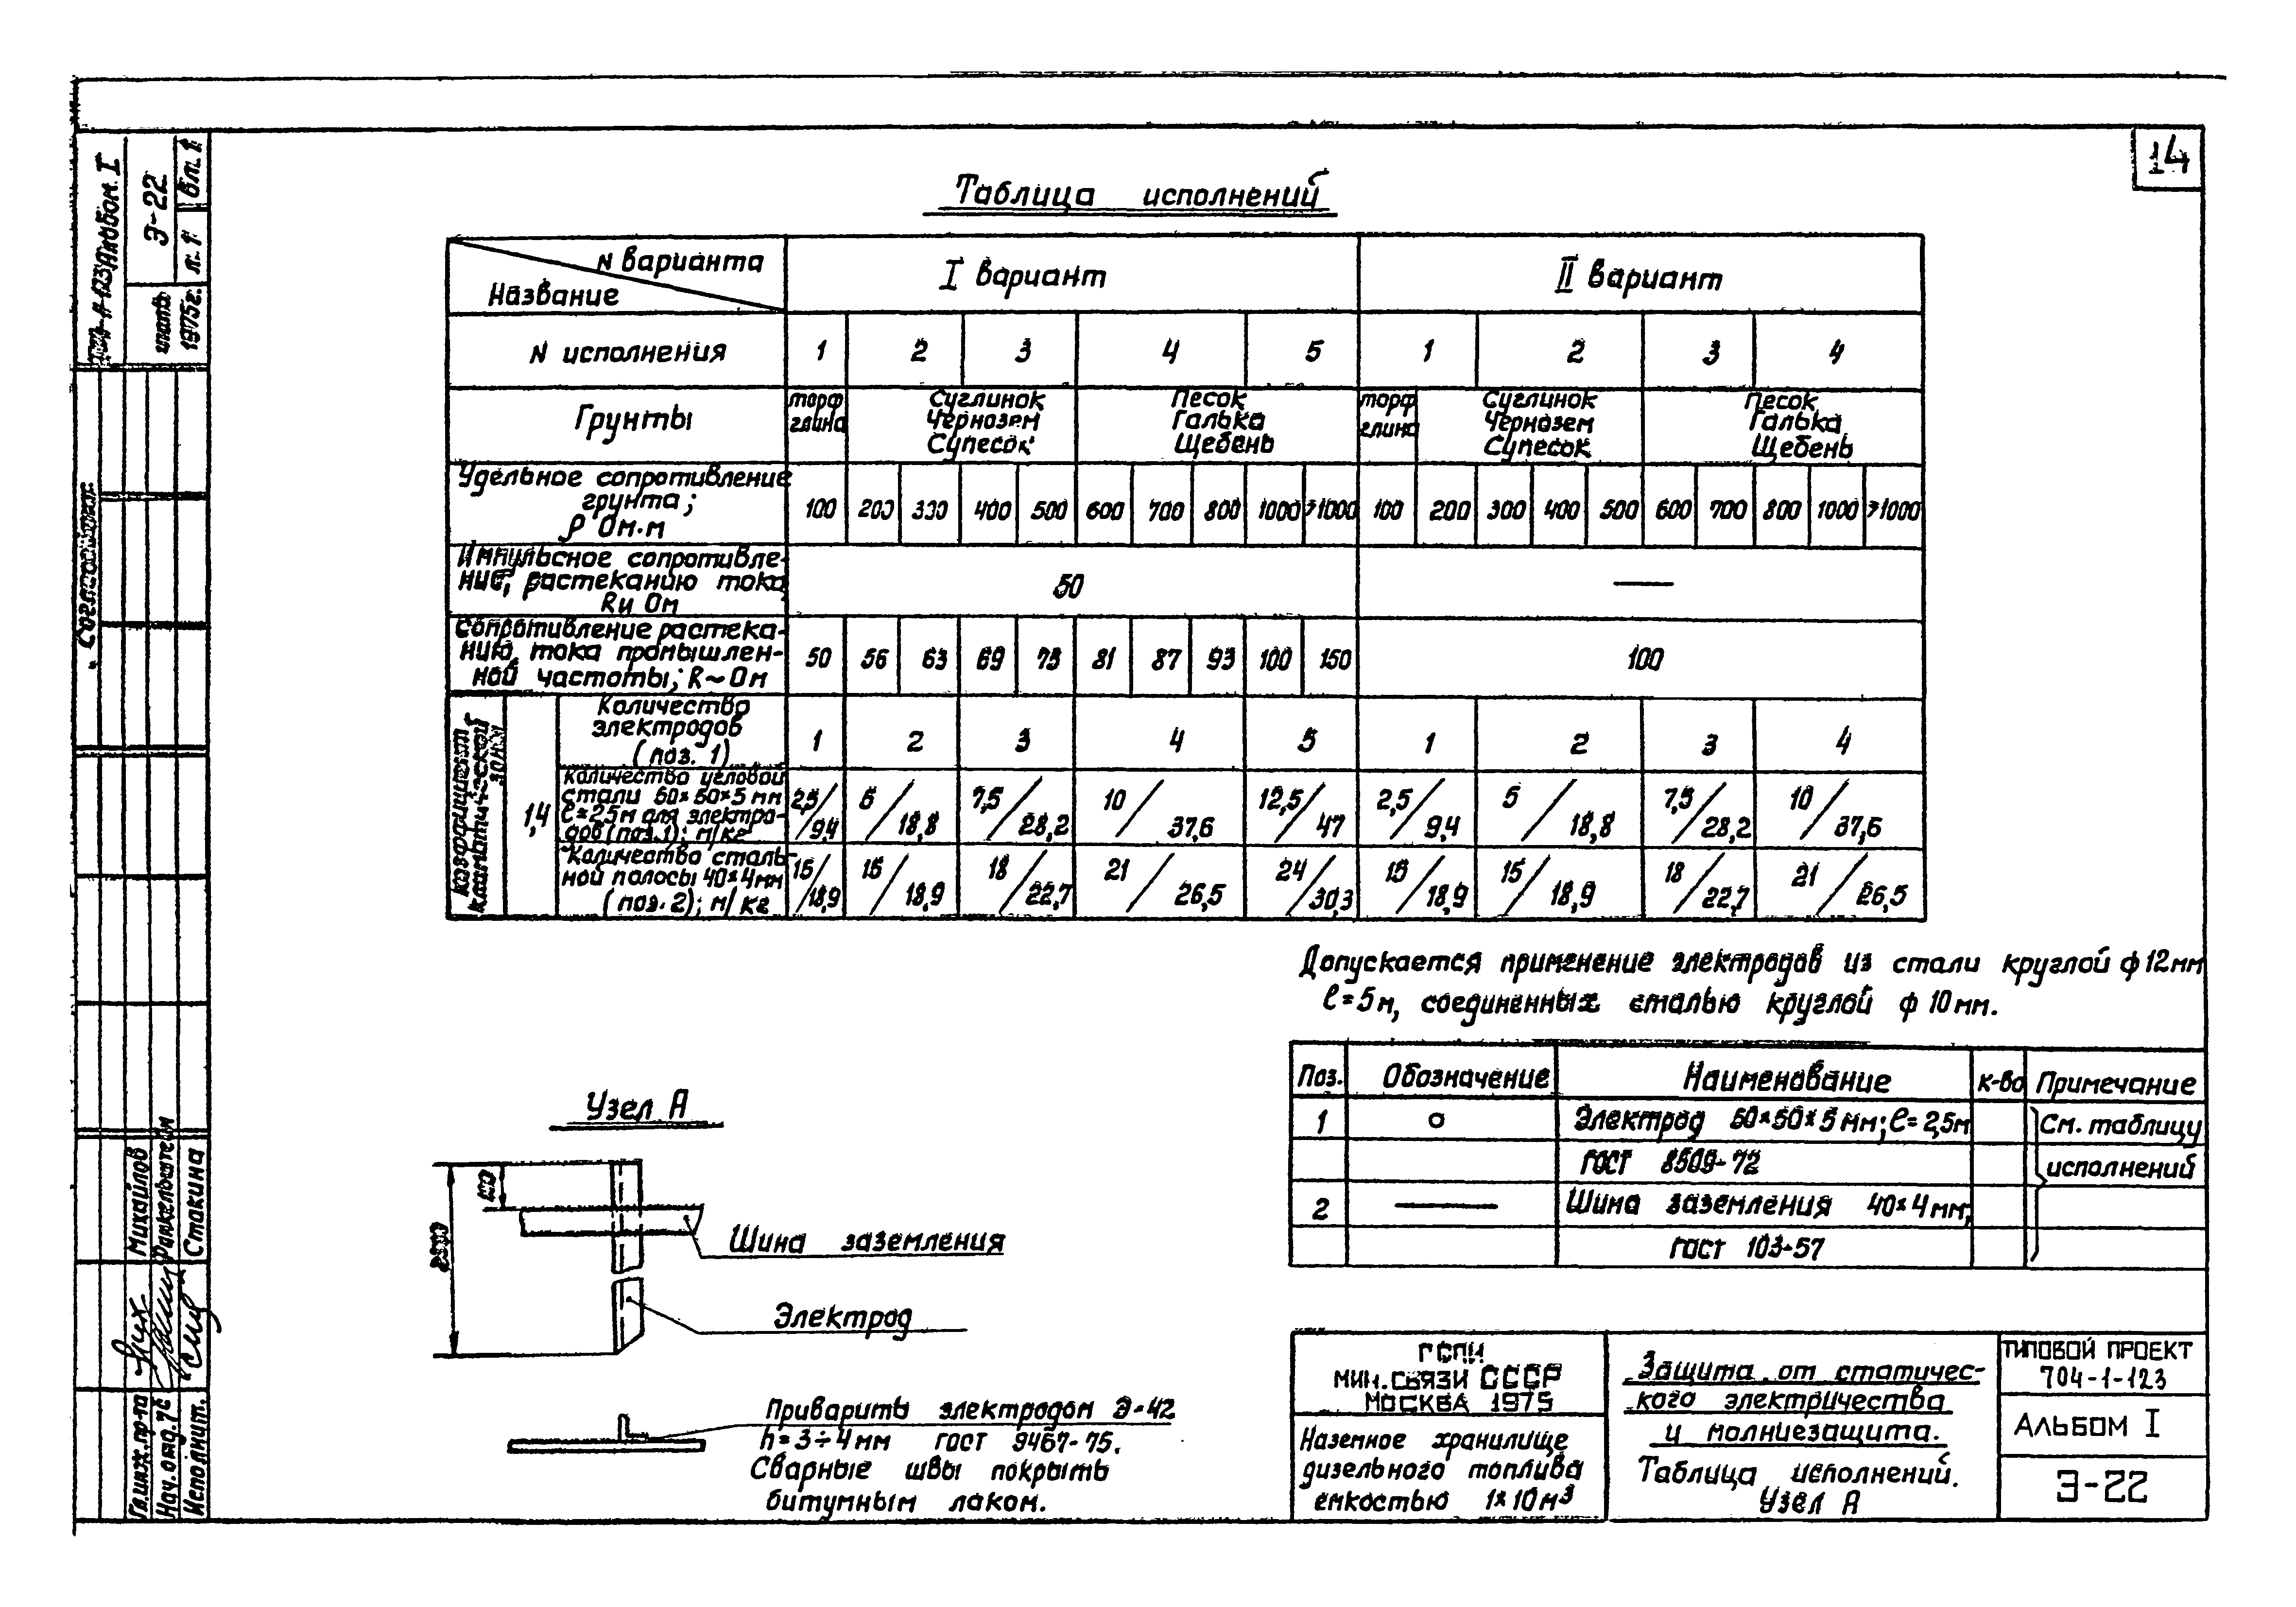 14
Таблица исполнений
N варианта
Название
I вариант
II вариант
N исполнения 1 2 3 4 5 1 2 3 4
Грунты
торф
глина
Суглинок
Чернозем
Супесок
Песок
Галька
Щебень
торф
глина
Суглинок
Чернозем
Супесок
Песок
Галька
Щебень
Удельное сопротивление
грунта;
ρ Ом.м
100 200 300 400 500 600 700 800 1000 >1000 100 200 300 400 500 600 700 800 1000 >1000
Импульсное сопротивле-
ние, растеканию тока
Rи Ом
50
—
Сопротивление растека-
нию тока промышлен-
ной частоты; R~Ом
50 56 63 69 75 81 87 93 100 150 100
Коэффициент
климатической
зоны
1,4
Количество
электродов
(поз. 1)
1 2 3 4 5 1 2 3 4
Количество угловой
стали 50×50×5 мм
ℓ=2,5м для электро-
дов (поз.1); м/кг
2,5/9,4 5/18,8 7,5/28,2 10/37,6 12,5/47 2,5/9,4 5/18,8 7,5/28,2 10/37,6
Количество сталь-
ной полосы 40×4мм
(поз. 2); м/кг
15/18,9 15/18,9 18/22,7 21/26,5 24/30,3 15/18,9 15/18,9 18/22,7 21/26,5
Допускается применение электродов из стали круглой ф 12мм
ℓ=5м, соединенных сталью круглой ф 10мм.
Поз. Обозначение Наименование к-во Примечание
1 Электрод 50×50×5 мм; ℓ=2,5м См. таблицу
ГОСТ 8509-72 исполнений
2 Шина заземления 40×4мм,
ГОСТ 103-57
Узел А
2500
Шина заземления
Электрод
Приварить электродом Э-42
h=3÷4мм ГОСТ 9467-75.
Сварные швы покрыть
битумным лаком.
ГСПИ
МИН.СВЯЗИ СССР
МОСКВА 1975
Наземное хранилище
дизельного топлива
емкостью 1×10м³
Защита от статичес-
кого электричества
и молниезащита.
Таблица исполнений.
Узел А
ТИПОВОЙ ПРОЕКТ
704-1-123
АЛЬБОМ I
Э-22
Альбом. I
Э-22
л. 1
вл. 1
1975г.
Согласовано:
Гл.инж.пр-та Михайлов
Нач.отд.
Исполнит. Стакина